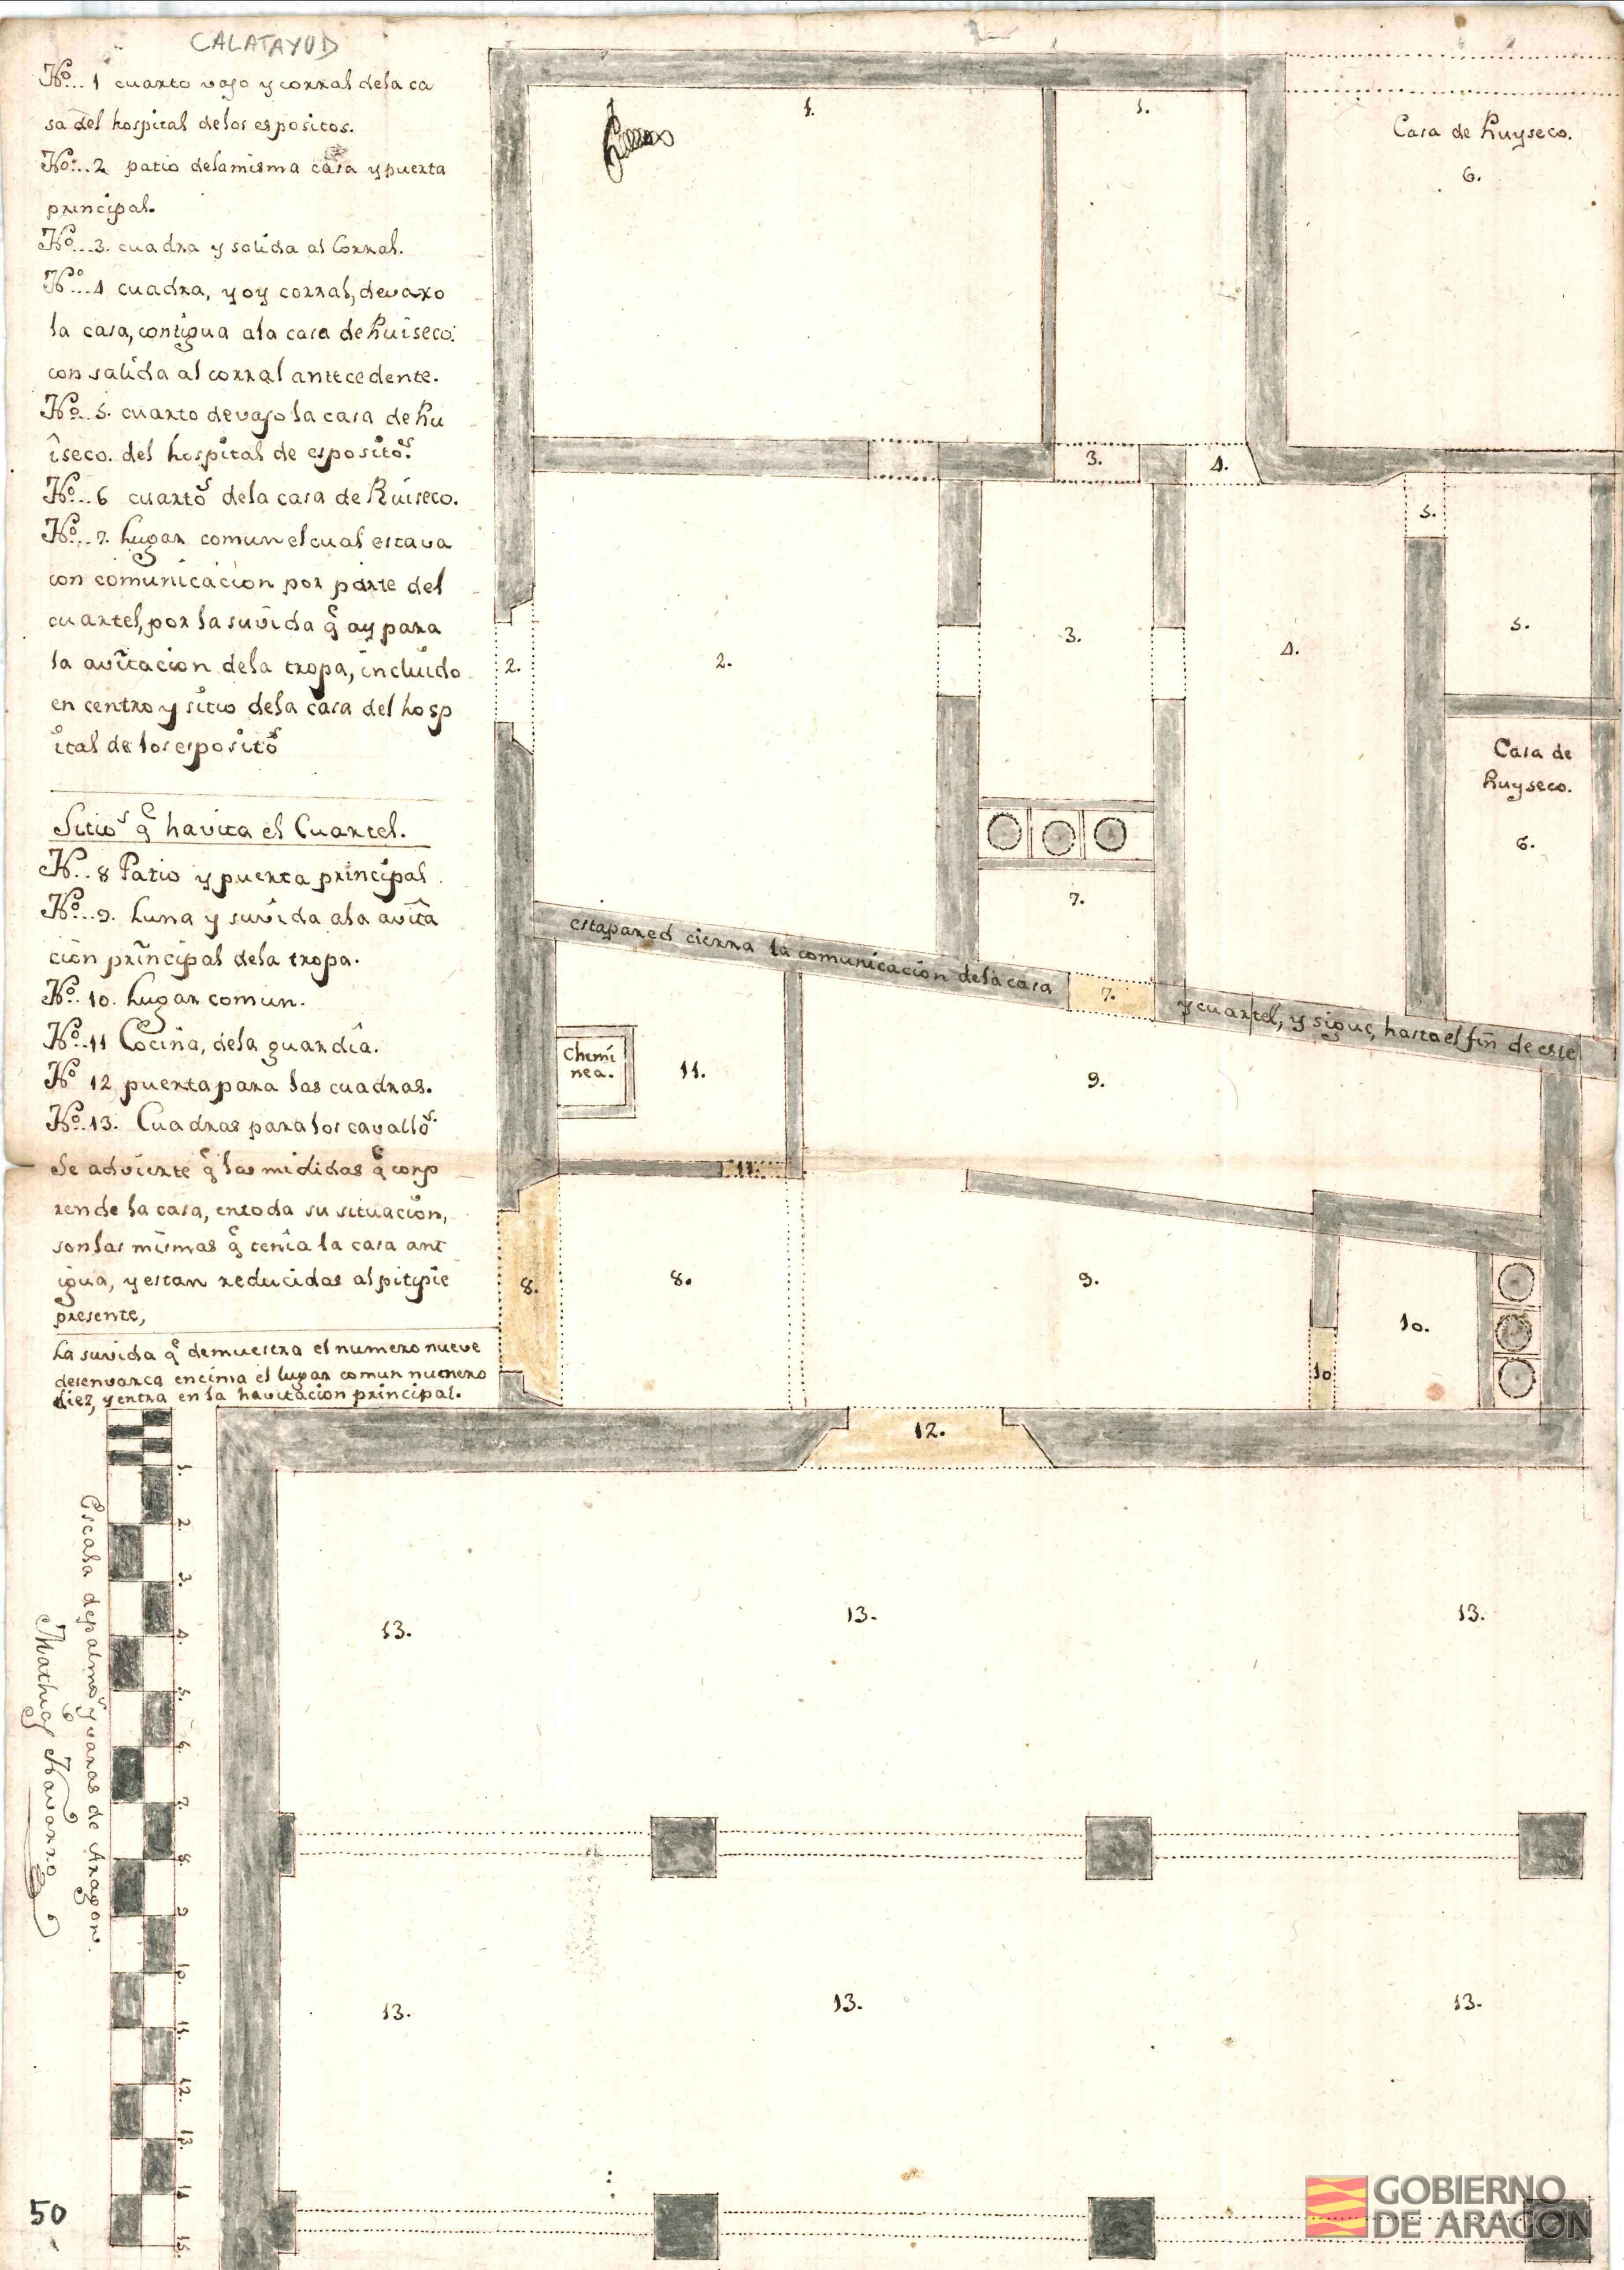 CALATAYUD
Nº... 1 cuarto vajo y corral dela ca
sa del hospital delos espositos.
Nº... 2 patio dela misma casa y puerta
principal.
Nº...3. cuadra y salida al Corral.
Nº...4 cuadra, y oy corral, devaxo
la casa, contigua ala casa de Ruiseco.
con salida al corral antecedente.
Nº...5. cuarto devajo la casa de Ru
iseco. del hospital de espositos.
Nº...6 cuartos dela casa de Ruiseco.
Nº...7. Lugar comun el cual estava
con comunicacion por parte del
cuartel, por la suvida q ay para
la avitacion dela tropa, incluido
en centro y sitio dela casa del hosp
ital de los espositos
Sitios q havita el Cuartel.
N...8 Patio y puerta principal
Nº...9. Luna y suvida ala avita
cion principal dela tropa.
Nº. 10. Lugar comun.
Nº. 11 Cocina, dela guardia.
Nº 12 puerta para las cuadras.
Nº. 13. Cuadras para los cavallos.
Se advierte q las mididas q conp
rende la casa, en toda su situacion,
son las mismas q tenia la casa ant
igua, y estan reducidas al pitipie
presente,
La suvida q demuestra el numero nueve
desenvarca encima el lugar comun numero
diez, y entra en la havitacion principal.
1.
1.
Casa de Ruyseco.
6.
3.
4.
5.
2.
2.
3.
4.
5.
Casa de
Ruyseco.
6.
7.
esta pared cierra la comunicacion dela casa
7.
y cuartel, y sigue, hasta el fin de este
Chemi
nea.
11.
9.
11.
8.
8.
9.
10.
10
12.
13.
13.
13.
13.
13.
13.
1.
2.
3.
4.
5.
6.
7.
8.
9
10.
11.
12.
13.
14
15.
Escala de palmos y varas de Aragon.
Mathias Navarro
50
GOBIERNO
DE ARAGON